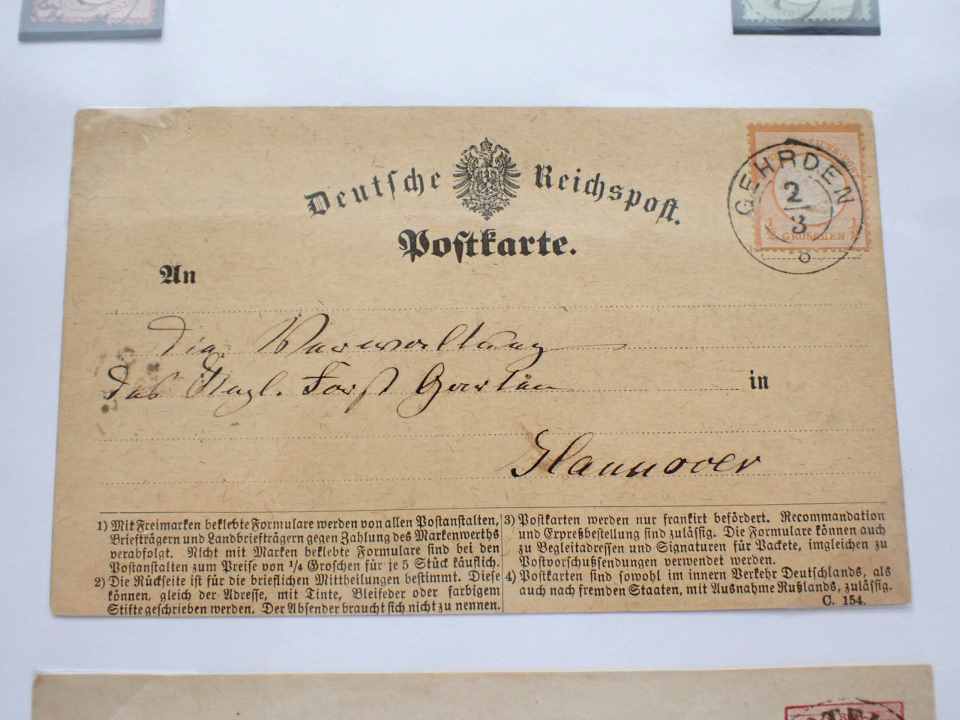 Deutsche Reichspost.
Postkarte.
GEHRDEN
2/3
8
1/2 GROSCHEN 1/2
An
die Verwaltung
des Kngl. Forst Garten
in
Hannover
1) Mit Freimarken beklebte Formulare werden von allen Postanstalten,
Briefträgern und Landbriefträgern gegen Zahlung des Markenwerths
verabfolgt. Nicht mit Marken beklebte Formulare sind bei den
Postanstalten zum Preise von 1/4 Groschen für je 5 Stück käuflich.
2) Die Rückseite ist für die brieflichen Mittheilungen bestimmt. Diese
können, gleich der Adresse, mit Tinte, Bleifeder oder farbigem
Stifte geschrieben werden. Der Absender braucht sich nicht zu nennen.
3) Postkarten werden nur frankirt befördert. Recommandation
und Expreßbestellung sind zulässig. Die Formulare können auch
zu Begleitadressen und Signaturen für Packete, imgleichen zu
Postvorschußsendungen verwendet werden.
4) Postkarten sind sowohl im innern Verkehr Deutschlands, als
auch nach fremden Staaten, mit Ausnahme Rußlands, zulässig.
C. 154.